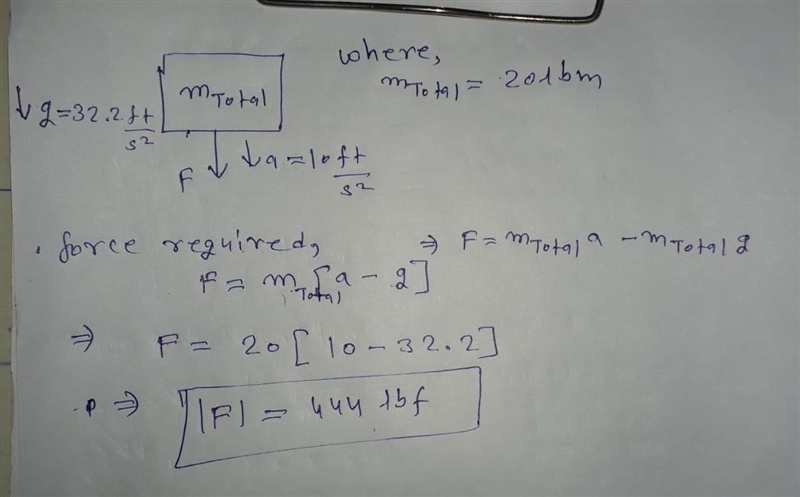 where,
m_Total = 20 lbm
m_Total
↓ g = 32.2 ft/s²
F ↓ ↓ a = 10 ft/s²
. force required, ⇒ F = m_Total a - m_Total g
F = m_Total [a - g]
⇒ F = 20 [10 - 32.2]
⇒ |F| = 444 lbf